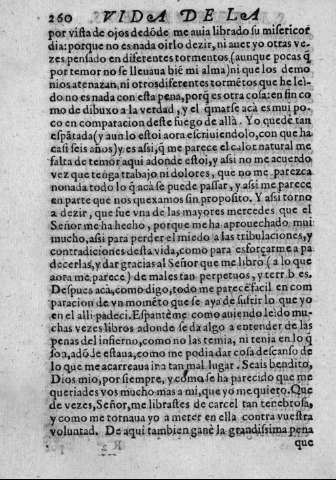 260 VIDA DE LA
por vista de ojos de dõde me auia librado su misericor
dia: porque no es nada oirlo dezir, ni auer yo otras ve-
zes pensado en diferentes tormentos (aunque pocas q̃
por temor no se lleuaua biẽ mi alma) ni que los demo
nios atenazan, ni otros diferentes tormẽtos que he lei-
do no es nada con esta pena, porq̃ es otra cosa: en fin co
mo de dibuxo a la verdad, y el qmarse acà es mui po-
co en comparacion deste fuego de allà. Yo quedè tan
espãtada (y aun lo estoi aora escriuiendolo, con que ha
casi seis años) y es assi, q̃ me parece el calor natural me
falta de temor aqui adonde estoi, y assi no me acuerdo
vez que tenga trabajo ni dolores, que no me parezca
nonada todo lo q̃ acà se puede passar, y assi me parece
en parte que nos quexamos sin proposito. Y assi torno
a dezir, que fue vna de las mayores mercedes que el
Señor me ha hecho, porque me ha aprouechado mui
mucho, assi para perder el miedo a las tribulaciones, y
contradiciones desta vida, como para esforçarme a pa
decerlas, y dar gracias al Señor que me librò (a lo que
aora me parece) de males tan perpetuos, y terribles.
Despues acà, como digo, todo me parece facil en com
paracion de vn momẽto que se aya de sufrir lo que yo
en el alli padeci. Espantème como auiendo leido mu-
chas vezes libros adonde se da algo a entender de las
penas del infierno, como no las temia, ni tenia en lo q̃
son, adõde estaua, como me podia dar cosa descanso de
lo que me acarreaua ir a tan mal lugar. Seais bendito,
Dios mio, por siempre, y como se ha parecido que me
queriades vos mucho mas a mi, que yo me quiero. Que
de vezes, Señor, me librastes de carcel tan tenebrosa,
y como me tornaua yo a meter en ella contra vuestra
voluntad. De aqui tambien ganè la grandissima pena
que